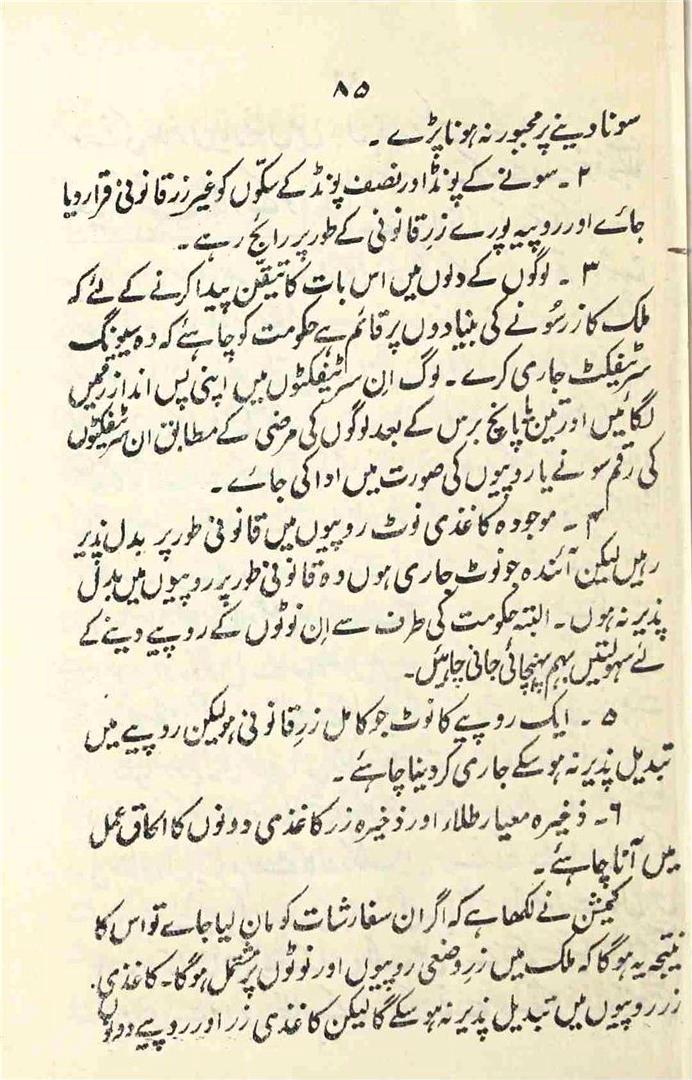 ۸۵
سونا دینے پر مجبور نہ ہونا پڑے ۔
۲ ۔ سونے کے پونڈ اور نصف پونڈ کے سکّوں کو غیر زر قانونی قرار دیا
جائے اور روپیہ پورے زرِ قانونی کے طور پر رائج رہے ۔
۳ ۔ لوگوں کے دلوں میں اس بات کا تیقّن پیدا کرنے کے لئے کہ
ملک کا زر سُونے کی بنیادوں پر قائم ہے حکومت کو چاہئے کہ وہ سیونگ
سرٹیفکٹ جاری کرے ۔ لوگ اِن سرٹیفکٹوں میں اپنی پس انداز رقمیں
لگائیں اور تین یا پانچ برس کے بعد لوگوں کی مرضی کے مطابق ان سرٹیفکٹوں
کی رقم سونے یا روپیوں کی صورت میں ادا کی جائے ۔
۴ ۔ موجودہ کاغذی نوٹ روپیوں میں قانونی طور پر بدل پذیر
رہیں لیکن آئندہ جو نوٹ جاری ہوں وہ قانونی طور پر روپیوں میں بدل
پذیر نہ ہوں ۔ البتہ حکومت کی طرف سے اِن نوٹوں کے روپیے دینے کے
لئے سہولتیں بہم پہنچائی جانی چاہئیں ۔
۵ ۔ ایک روپیے کا نوٹ جو کامل زرِ قانونی ہو لیکن روپیے میں
تبدیل پذیر نہ ہو سکے جاری کر دینا چاہئے ۔
۶ ۔ ذخیرہ معیار طلاء اور ذخیرہ زر کاغذی دونوں کا الحاق عمل
میں آنا چاہئے ۔
کمیشن نے لکھا ہے کہ اگر ان سفارشات کو مان لیا جاے تو اس کا
نتیجہ یہ ہوگا کہ ملک میں زرِ وضعی روپیوں اور نوٹوں پر مشتمل ہوگا ۔ کاغذی
زر روپیوں میں تبدیل پذیر نہ ہو سکے گا لیکن کاغذی زر اور روپیے دونوں